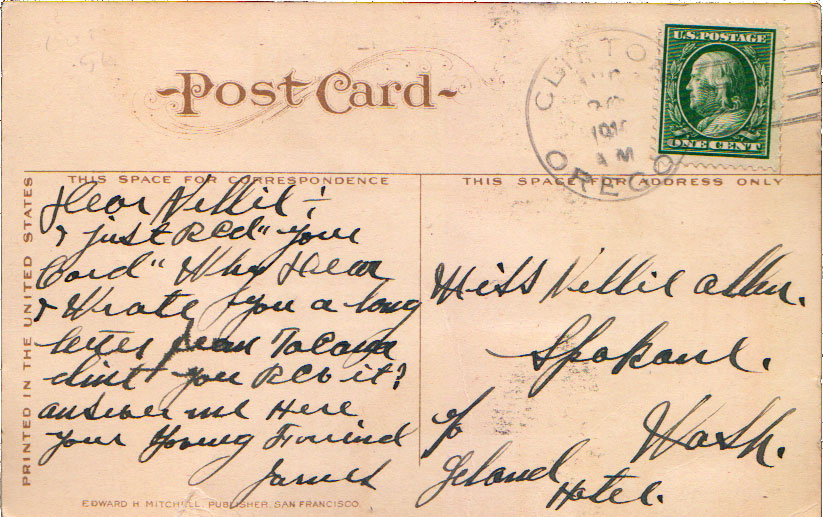 Post Card
CLIFTO
191
AM
OREGO
U.S. POSTAGE
ONE CENT
THIS SPACE FOR CORRESPONDENCE
THIS SPACE FOR ADDRESS ONLY
PRINTED IN THE UNITED STATES
Dear Nellie :-
I just RCd" your
Card" Why Dear
I Wrote you a long
letter from Tacoma
dint you RCv it?
answer me Here
your Young Friend
James
Miss Nellie allen.
Spokane.
Wash.
c/o
Hotel.
EDWARD H. MITCHELL, PUBLISHER, SAN FRANCISCO.